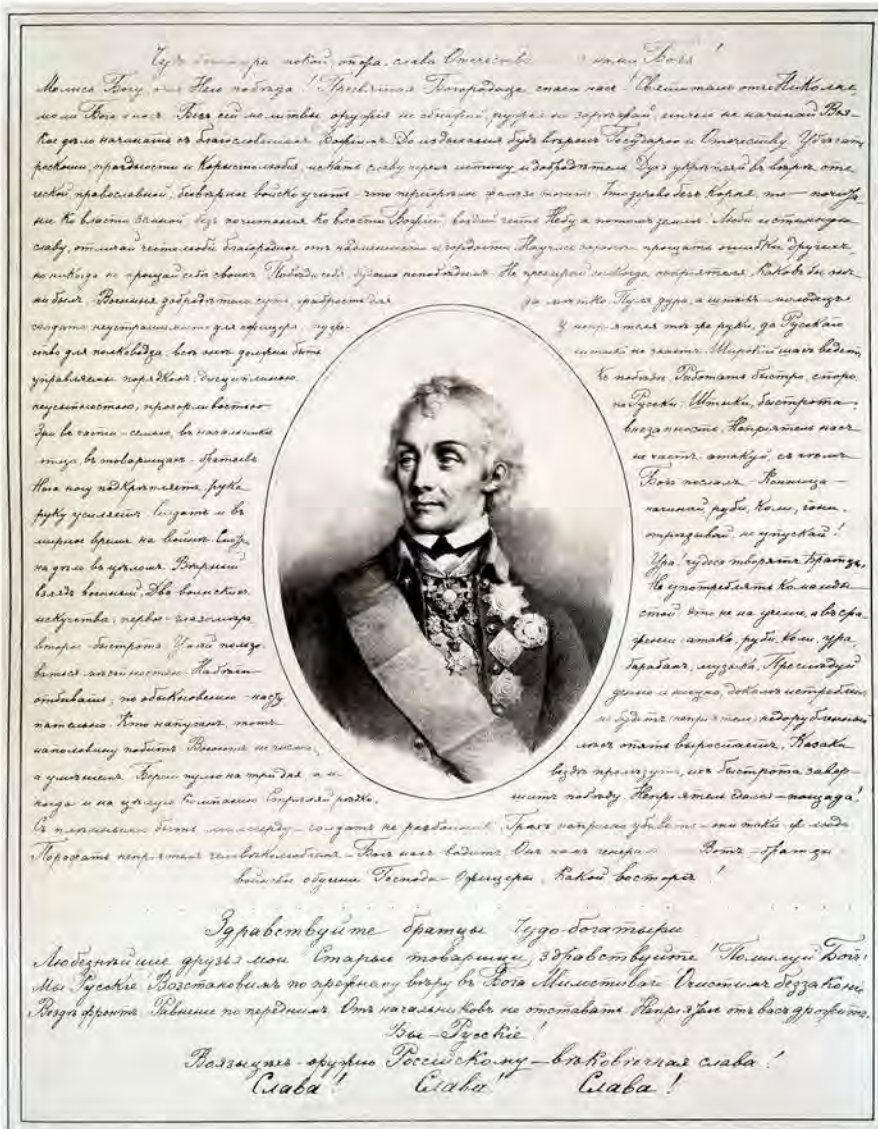 Чудо богатыри покой, опора, слава Отечества с нами Богъ!
Молись Богу, отъ Него побѣда! Пресвятая Богородице спаси насъ! Святителю отче Николае,
моли Бога о насъ. Безъ сей молитвы оружія не обнажай, ружья не заряжай, ничего не начинай. Вся-
кое дѣло начинать съ благословеніемъ Божіимъ. До издыханія будь вѣренъ Государю и Отечеству. Убѣгать
роскоши, праздности и корыстолюбія, искать славу чрезъ истину и добродѣтель. Духъ укрѣпляй въ вѣрѣ оте-
ческой православной, безвѣрное войско учить — что перегорѣлое желѣзо точить
ко власти безъ почитанія ко власти Божіей воздай честь Небу а потомъ землѣ. Люби истинную
славу, отличай честолюбіе благородное отъ надменности и гордости. Научись заранѣ прощать ошибки другихъ,
но никогда не прощай себѣ своихъ. Побѣди себя, будешь непобѣдимъ. Не презирай никогда непріятеля, каковъ бы онъ
ни былъ. Военныя добродѣтели суть, храбрость для
солдата неустрашимость для офицера, муже-
ство для полководца, всѣ онѣ должны быть
управляемы порядкомъ, дисциплиною,
неусыпностью, прозорливостью
Зри въ части — семью, въ начальникѣ
— отца, въ товарищахъ — братьевъ
Нога ногу подкрѣпляетъ, рука
руку усиляетъ. Солдатъ и въ
мирное время на войнѣ. Смотри
на дѣло въ цѣломъ. Вѣрный
взглядъ военный. Два воинскихъ
искусства, первое — глазомѣръ,
второе — быстрота. Умѣй пользо-
ваться мѣстностью.
отбиваться, по обыкновенію — насту-
пательно. Кто напуганъ, тотъ
наполовину побитъ. Воюютъ не числомъ,
а умѣніемъ. Береги пулю на три дня, а и-
ногда и на цѣлую кампанію. Стрѣляй рѣдко,
да мѣтко. Пуля дура, а штыкъ — молодецъ
У непріятеля тѣ же руки, да Русскаго
штыка не знаютъ. Широкій шагъ ведетъ
къ побѣдѣ. Работать быстро, споро,
по Русски. Штыки, быстрота,
внезапность. Непріятель насъ
не чаетъ, атакуй, съ чѣмъ
Богъ послалъ. Конница —
начинай, руби, коли, гони,
отрѣзывай, не упускай!
Ура! чудеса творятъ братцы.
Не употреблять команды
стой. Это не на ученьи, а въ сра-
женьи: атака, руби, коли, ура,
барабанъ, музыка. Преслѣдуй
денно и нощно, доколѣ истребленъ
не будетъ непріятель: недорубленный
лѣсъ опять выростаетъ. Казаки
вездѣ пролѣзутъ, ихъ быстрота завер-
шитъ побѣду. Непріятель сдался — пощада!
Съ плѣнными быть милосерду — солдатъ не разбойникъ. Грѣхъ напрасно убивать — они такіе же люди
Поражать непріятеля человѣколюбіемъ — Богъ насъ водитъ. Онъ намъ генералъ. Вотъ — братцы
воинское обученіе Господа — Офицеры, какой восторгъ!
Здравствуйте братцы Чудо-богатыри
Любезнѣйшие друзья мои Старые товарищи, здравствуйте! Помилуй Богъ!
Мы Русскіе Возстановимъ по прежнему вѣру въ Бога Милостиваго. Очистимъ беззаконіе
Вездѣ фронтъ. Равненіе по переднимъ. Отъ начальниковъ не отставать. Непріятель отъ васъ дрожитъ.
Вы — Русскіе!
оружію Россійскому — вѣковѣчная слава!
Слава! Слава! Слава!